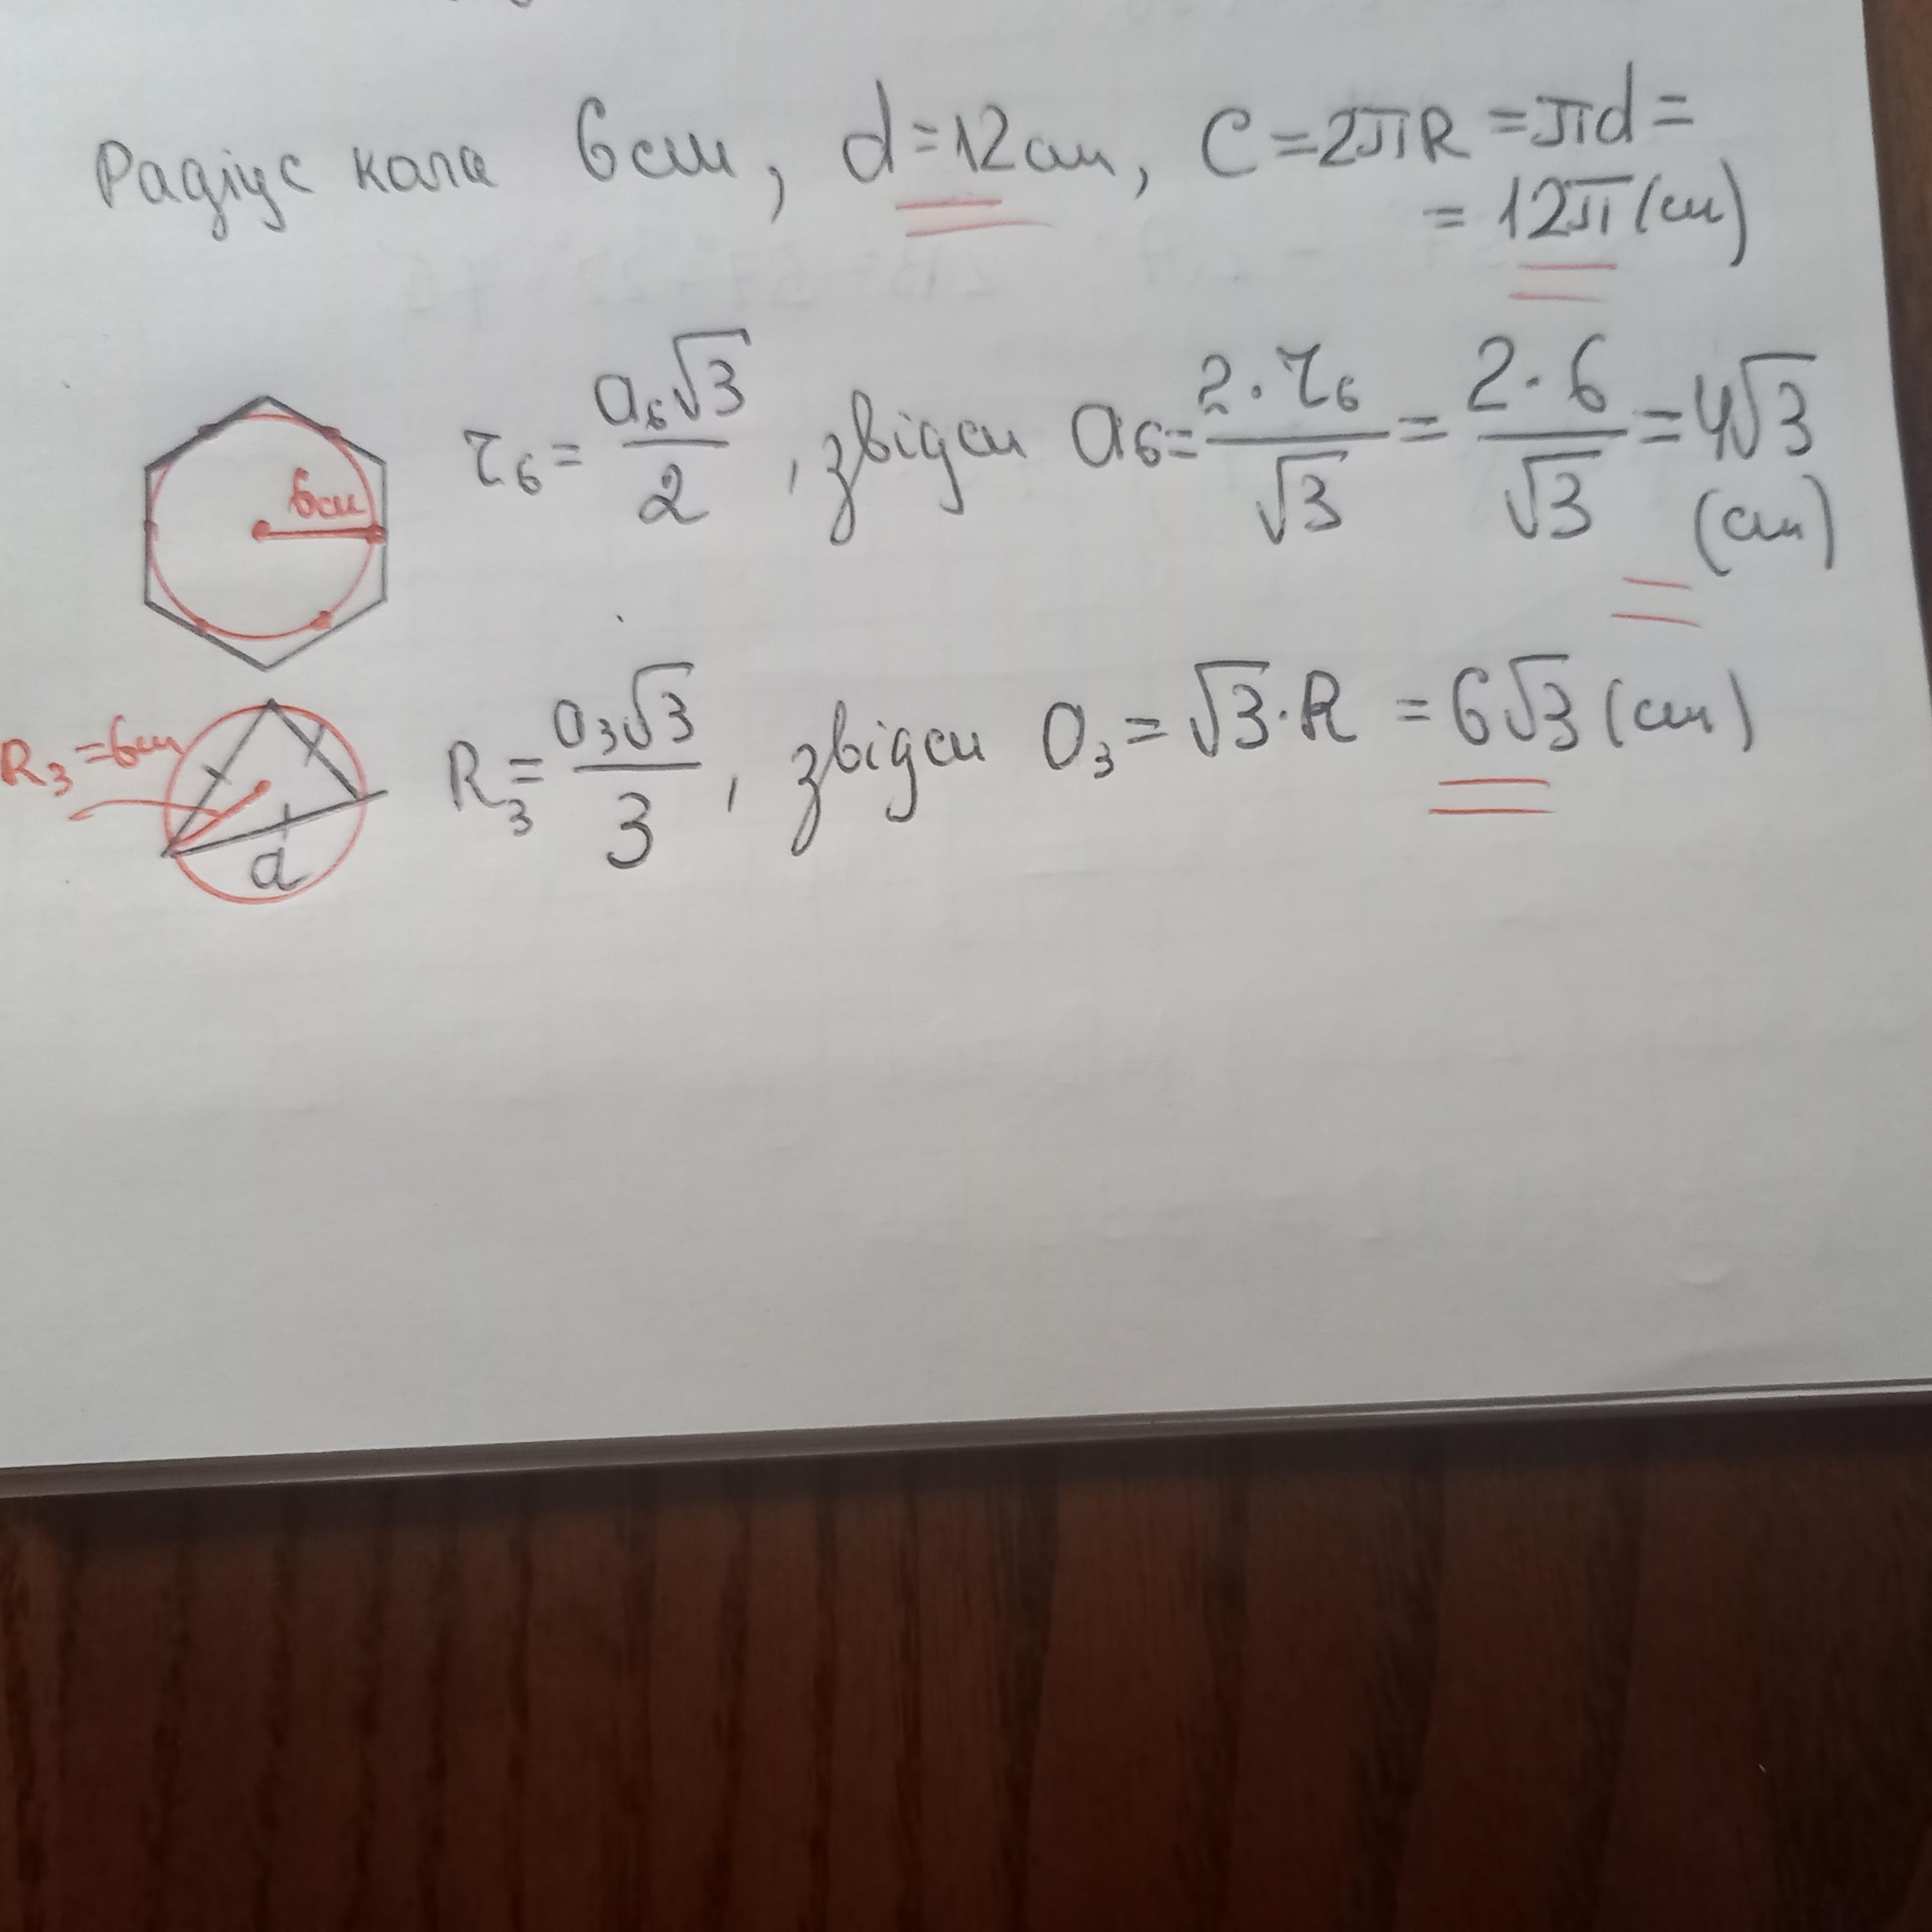 Радіус кола 6см, d=12см, C=2πR=πd=
=12π(см)
6см
r₆=a₆√3/2, звідси a₆=2·r₆/√3=2·6/√3=4√3
(см)
R₃=6см
a
R₃=a₃√3/3, звідси a₃=√3·R=6√3(см)